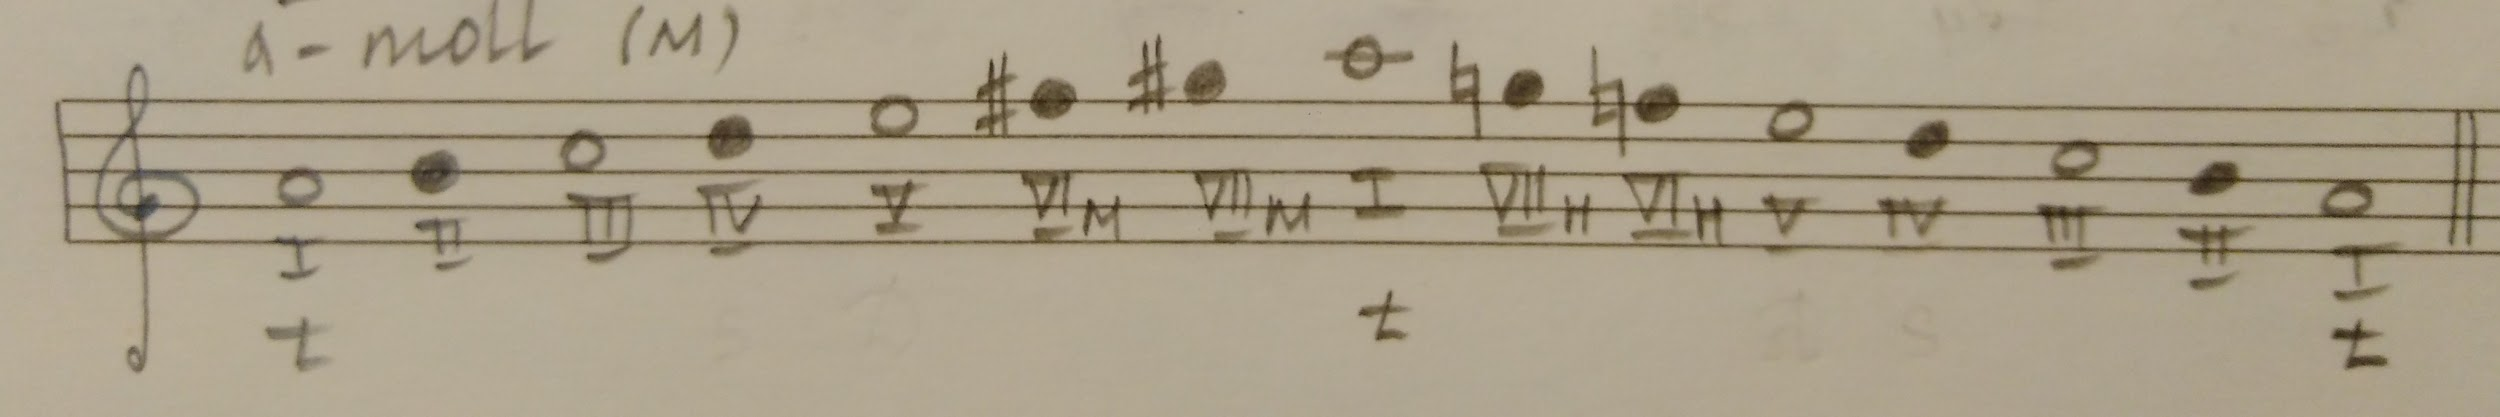 a-moll (м)
I II III IV V VIм VIIм I VIIн VIн V IV III II I
t t t